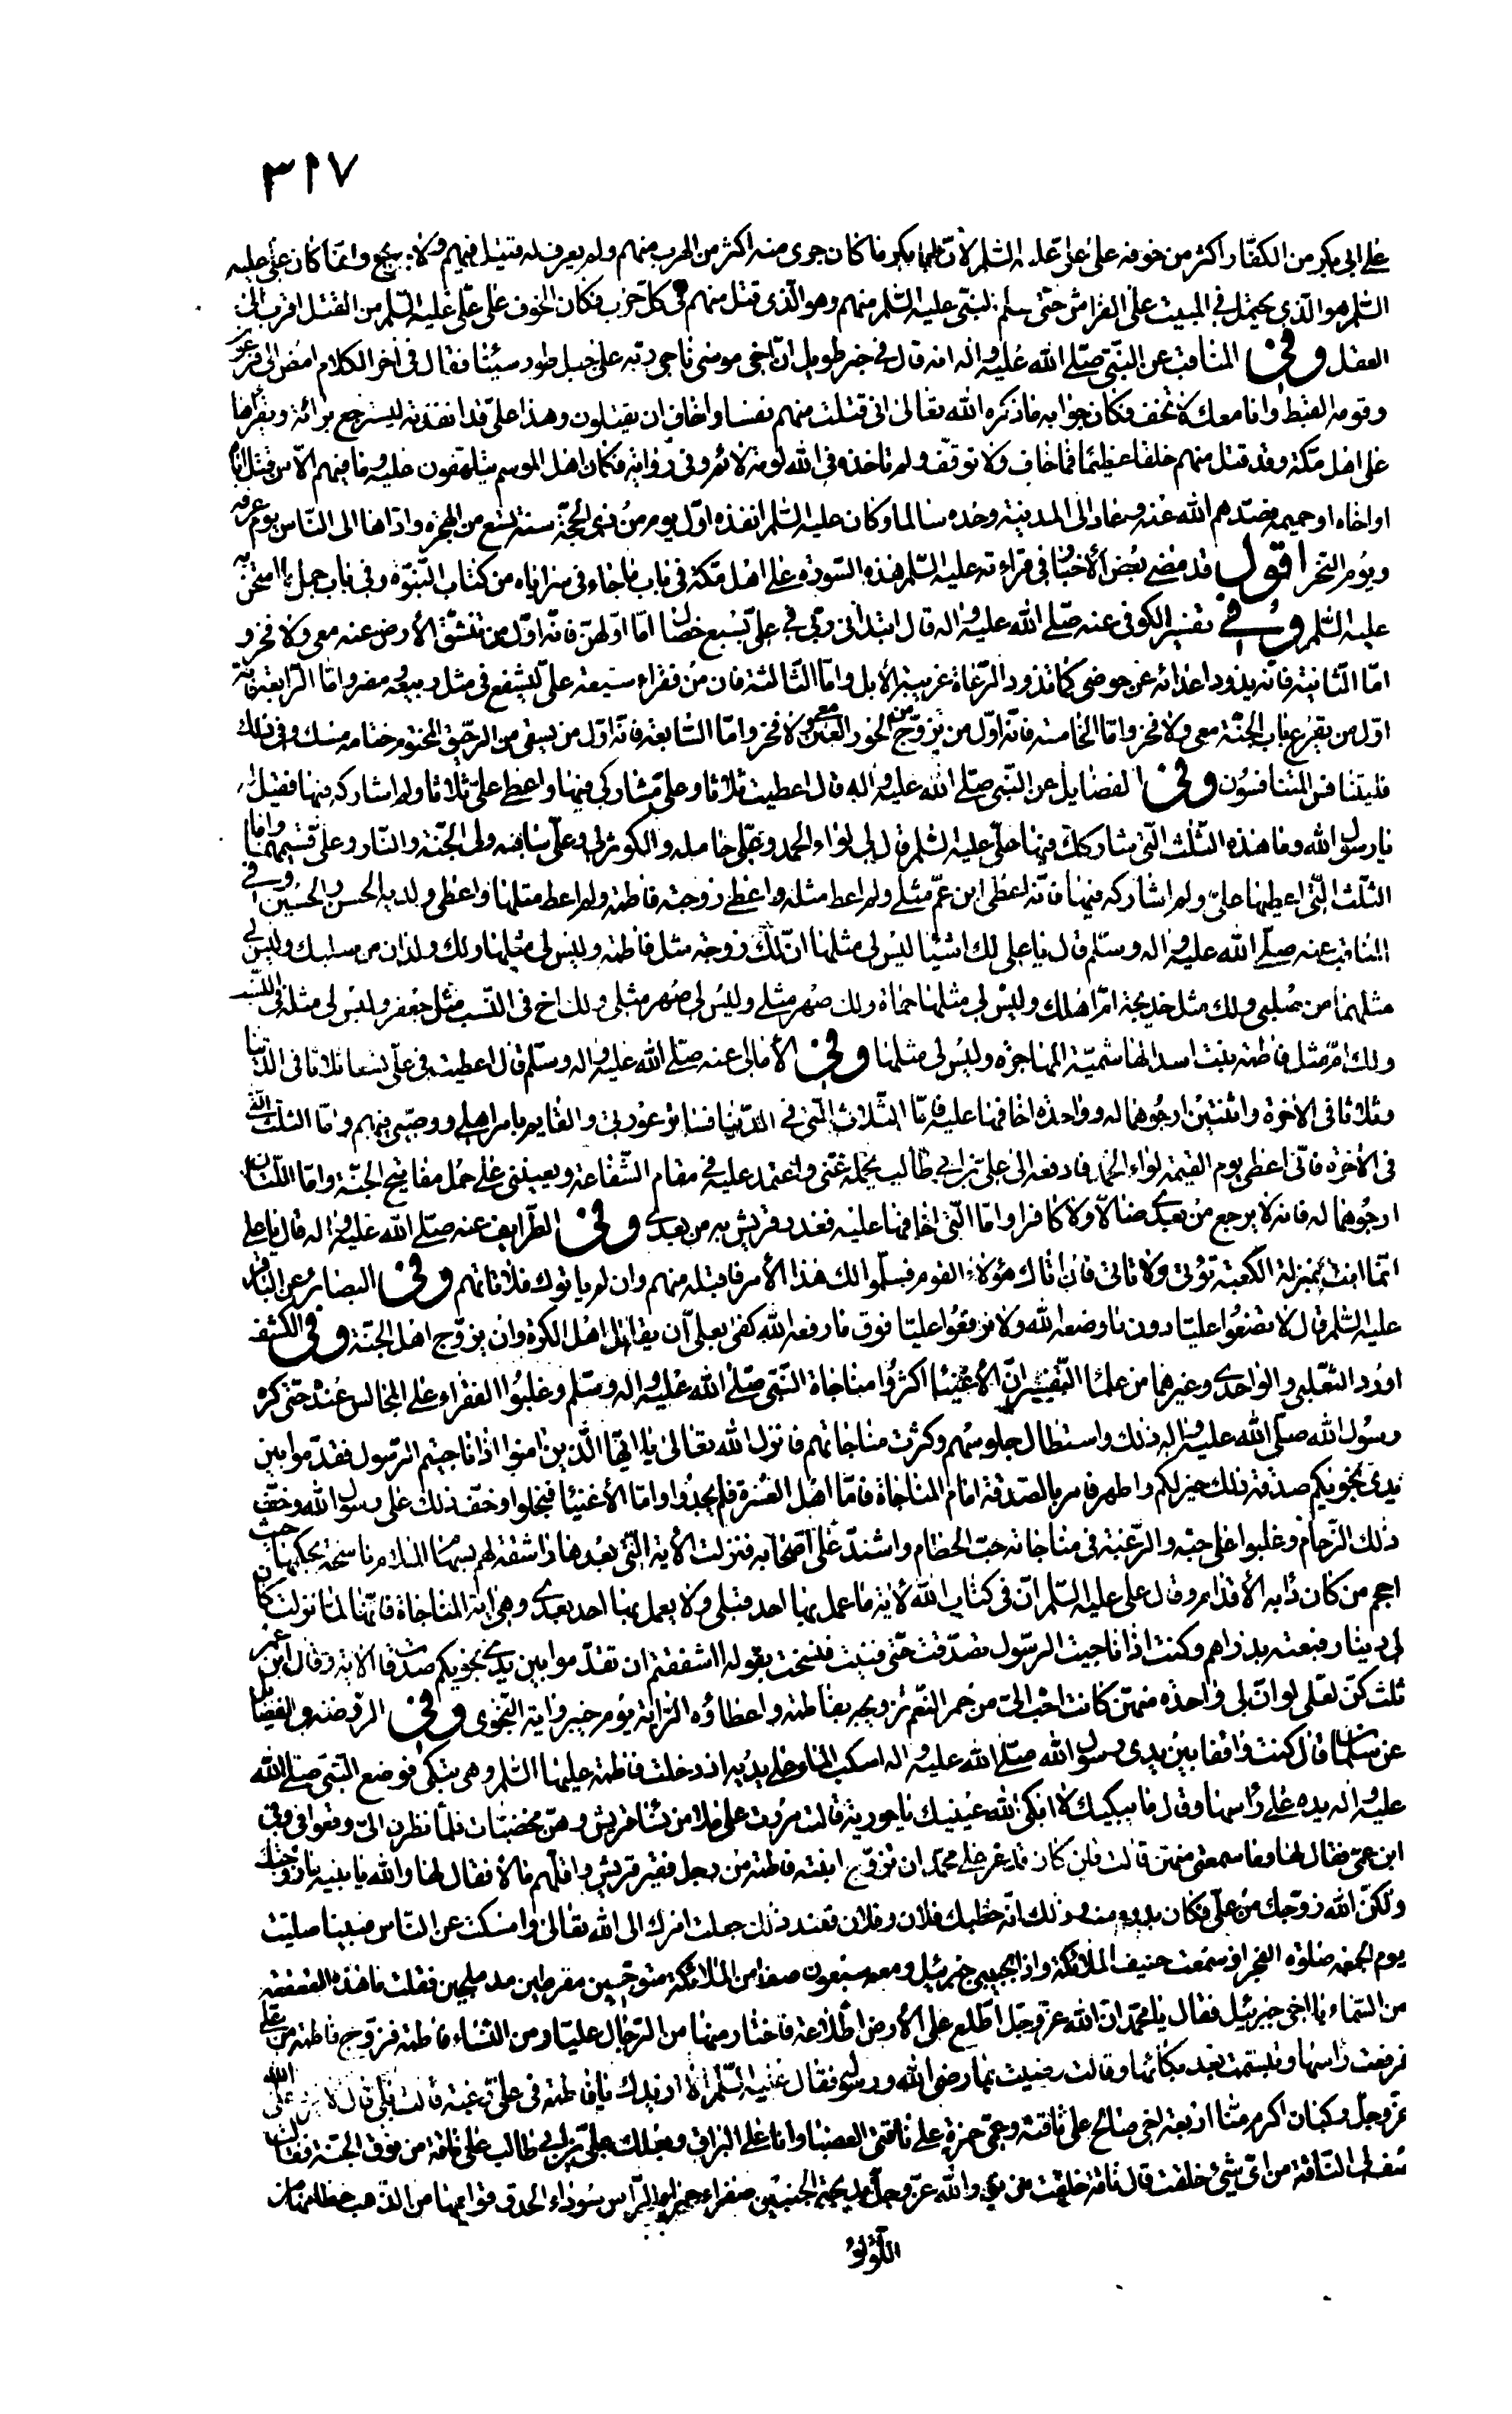 ٣١٧
على ابى بكر من الكفار اكثر من خوفه على على عليه السلم لان ابا بكر ما كان جرى منه اكثر من الهرب منهم ولم يعرف له قتيل فيهم ولا جريح وانما كان على عليه
السلم هو الذى يحتمل فى المبيت على الفراش حتى سلم النبى عليه السلم منهم وهو الذى قتل منهم فى كل حرب فكان الخوف على على عليه السلم من القتل اقرب الى
العقل وفى المناقب عن النبى صلى الله عليه واله انه قال فى خبر طويل ان اخى موسى ناجى ربه على جبل طور سينا فقال فى اخر الكلام امض الى فرعون
وقومه القبط وانا معك لا تخف فكان جوابه ما ذكره الله تعالى انى قتلت منهم نفسا واخاف ان يقتلون وهذا على قد انفذته ليسترجع برائة ويقراها
على اهل مكة وقد قتل منهم خلقا عظيما فما خاف ولا توقف ولم تاخذه فى الله لومة لائم وفى رواية فكان اهل الموسم يتلهفون عليه وما فيهم الا من قتل اباه
او اخاه او حميمه فصدهم الله عنه وعاد الى المدينة وحده سالما وكان عليه السلم انفذه اول يوم من ذى الحجة سنة تسع من الهجرة واداها الى الناس يوم عرفة
ويوم النحر اقول قد مضى بعض الاخبار فى قراءته عليه السلم هذه السورة على اهل مكة فى باب ما جاء فى سراياه من كتاب النبوة وفى باب جمل ما امتحن به
عليه السلم وفى تفسير الكوفى عنه صلى الله عليه واله قال ابتدانى ربى فى على بسبع خصال اما اولهن فانه اول من تنشق الارض عنه معى ولا فخر و
اما الثانية فانه يذود اعدائه عن حوضى كما تذود الرعاة غريبة الابل واما الثالثة فان من فقراء شيعة على ليشفع فى مثل ربيعة ومضر واما الرابعة فانه
اول من يقرع باب الجنة معى ولا فخر واما الخامسة فانه اول من يزوج من الحور العين معى ولا فخر واما السابعة فانه اول من يسقى من الرحيق المختوم ختامه مسك وفى ذلك
فليتنافس المتنافسون وفى الفضايل عن النبى صلى الله عليه واله قال اعطيت ثلاثا وعلى مشاركى فيها واعطى على ثلاثا ولم اشاركه فيها فقيل
يا رسول الله وما هذه الثلث التى شاركك فيها على عليه السلم قال لى لواء الحمد وعلى حامله والكوثر لى وعلى ساقيه ولى الجنة والنار وعلى قسيمهما واما
الثلث التى اعطيها على ولم اشاركه فيها فانه اعطى ابن عم مثلى ولم اعط مثله واعطى زوجته فاطمة ولم اعط مثلها واعطى ولديه الحسن والحسين وفى
المناقب عنه صلى الله عليه واله وسلم قال يا على لك اشيا ليس لى مثلها ان لك زوجة مثل فاطمة وليس لى مثلها ولك ولدان من صلبك وليس لى
مثلهما من صلبى ولك مثل خديجة ام اهلك وليس لى مثلها حماة ولك صهر مثلى وليس لى صهر مثلى ولك اخ فى النسب مثل جعفر وليس لى مثله فى النسب
ولك ام مثل فاطمة بنت اسد الهاشمية المهاجرة وليس لى مثلها وفى الامالى عنه صلى الله عليه واله وسلم قال اعطيت فى على تسعا ثلاثا فى الدنيا
وثلاثا فى الاخرة واثنتين ارجوهما له وواحدة اخافها عليه فاما الثلاث التى فى الدنيا فساتر عورتى والقايم بامر اهلى ووصيى فيهم واما الثلث التى
فى الاخرة فانى اعطى يوم القيمة لواء الحمد فادفعه الى على بن ابى طالب يحمله عنى واعتمد عليه فى مقام الشفاعة ويعيننى على حمل مفاتيح الجنة واما اللتان
ارجوهما له فانه لا يرجع من بعدى ضالا ولا كافرا واما التى اخافها عليه فغدر قريش به من بعدى وفى الطرايف عنه صلى الله عليه واله قال يا على
انما انت بمنزلة الكعبة تؤتى ولا تاتى فان اتاك هؤلاء القوم فسلموا لك هذا الامر فاقبله منهم وان لم ياتوك فلا تاتهم وفى البصائر عن الباقر
عليه السلم قال لا تضعوا عليا دون ما وضعه الله ولا ترفعوا عليا فوق ما رفعه الله كفى بعلى ان يقاتل اهل الكرة وان يزوج اهل الجنة وفى الكشف
اورد الثعلبى والواحدى وغيرهما من علماء التفسير ان الاغنيا اكثروا مناجاة النبى صلى الله عليه واله وسلم وغلبوا الفقراء على المجالس عنده حتى كره
رسول الله صلى الله عليه واله ذلك واستطال جلوسهم وكثرت مناجاتهم فانزل الله تعالى يا ايها الذين امنوا اذا ناجيتم الرسول فقدموا بين
يدى نجويكم صدقة ذلك خير لكم واطهر فامر بالصدقة امام المناجاة فاما اهل العسرة فلم يجدوا واما الاغنيا فبخلوا وخف ذلك على رسول الله وخف
ذلك الزحام وغلبوا على حبه والرغبة فى مناجاته حب الحطام واشتد على اصحابه فنزلت الاية التى بعدها راشقة لهم بسهام الملام ناسخة بحكمها حيث
احجم من كان دابه الاقدام وقال على عليه السلم ان فى كتاب الله لاية ما عمل بها احد قبلى ولا يعمل بها احد بعدى وهى اية المناجاة فانها لما نزلت كان
لى دينار فبعته بدراهم وكنت اذا ناجيت الرسول تصدقت حتى فنيت فنسخت بقوله ااشفقتم ان تقدموا بين يدى نجويكم صدقات الاية وقال ابن عمر
ثلث كن لعلى لو ان لى واحدة منهن كانت احب الى من حمر النعم تزويجه بفاطمة واعطاؤه الراية يوم خيبر واية النجوى وفى الروضة والفضايل
عن سلمان قال كنت واقفا بين يدى رسول الله صلى الله عليه واله اسكب الماء على يديه اذ دخلت فاطمة عليها السلم وهى تبكى فوضع النبى صلى الله
عليه واله يده على راسها وقال ما يبكيك لا ابكى الله عينيك يا حورية قالت مررت على ملا من نساء قريش وهن مخضبات فلما نظرن الى وقعوا فى وفى
ابن عمى فقال لها وما سمعتى منهن قالت قلن كان قد عز على محمد ان تزوج ابنته فاطمة من رجل فقير قريش واقلهم مالا فقال لها والله يا بنية ما زوجتك
ولكن الله زوجك من على فكان بدوه منه وذلك انه خطبك فلان وفلان فعند ذلك جعلت امرك الى الله تعالى وامسكت عن الناس فبينا صليت
يوم الجمعة صلوة الفجر اذ سمعت حفيف الملائكة واذا بحبيبى جبرئيل ومعه سبعون صفا من الملائكة متوجين مقرطين مدملجين فقلت ما هذه القعقعة
من السماء يا اخى جبرئيل فقال يا محمد ان الله عز وجل اطلع على الارض اطلاعة فاختار منها من الرجال عليا ومن النساء فاطمة فزوج فاطمة من على
فرفعت راسها وتبسمت بعد بكائها وقالت رضيت بما رضى الله ورسوله فقال عليه السلم الا ازيدك يا فاطمة فى على رغبة قالت بلى قال لا يرد على الله
عز وجل ركبان اكرم منا اربعة اخى صالح على ناقته وعمى حمزة على ناقتى العضبا وانا على البراق وبعلك على بن ابى طالب على ناقة من نوق الجنة فقالت
صف لى الناقة من اى شئ خلقت قال ناقة خلقت من نور الله عز وجل مدبجة الجنبين صفراء حمراء الراس سوداء الحدق قوائمها من الذهب خطامها من
اللؤلؤ